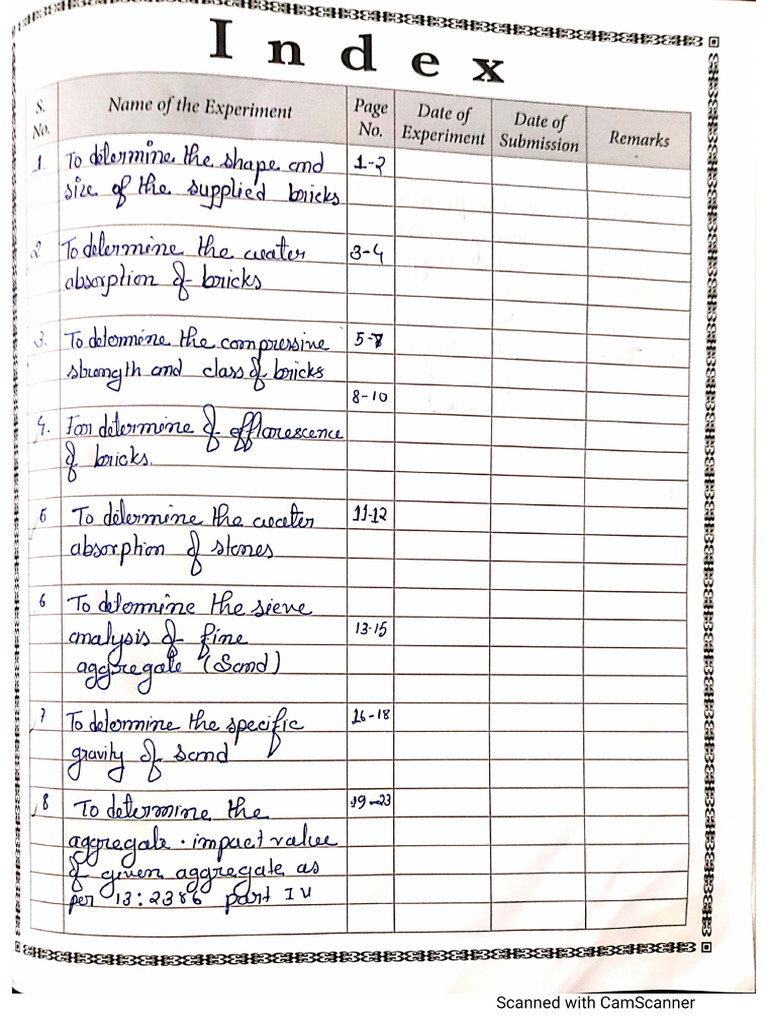 Index
S. No. Name of the Experiment Page No. Date of Experiment Date of Submission Remarks
1. To determine the shape and 1-2
size of the supplied bricks
2 To determine the water 3-4
absorption of bricks
3. To determine the compressive 5-7
strength and class of bricks
8-10
4. For determine of efflorescence
of bricks.
5 To determine the water 11-12
absorption of stones
6 To determine the sieve
analysis of fine 13-15
aggregate (Sand)
7 To determine the specific 16-18
gravity of sand
8 To determine the 19-23
aggregate impact value
of given aggregate as
per 13:2386 part IV
Scanned with CamScanner